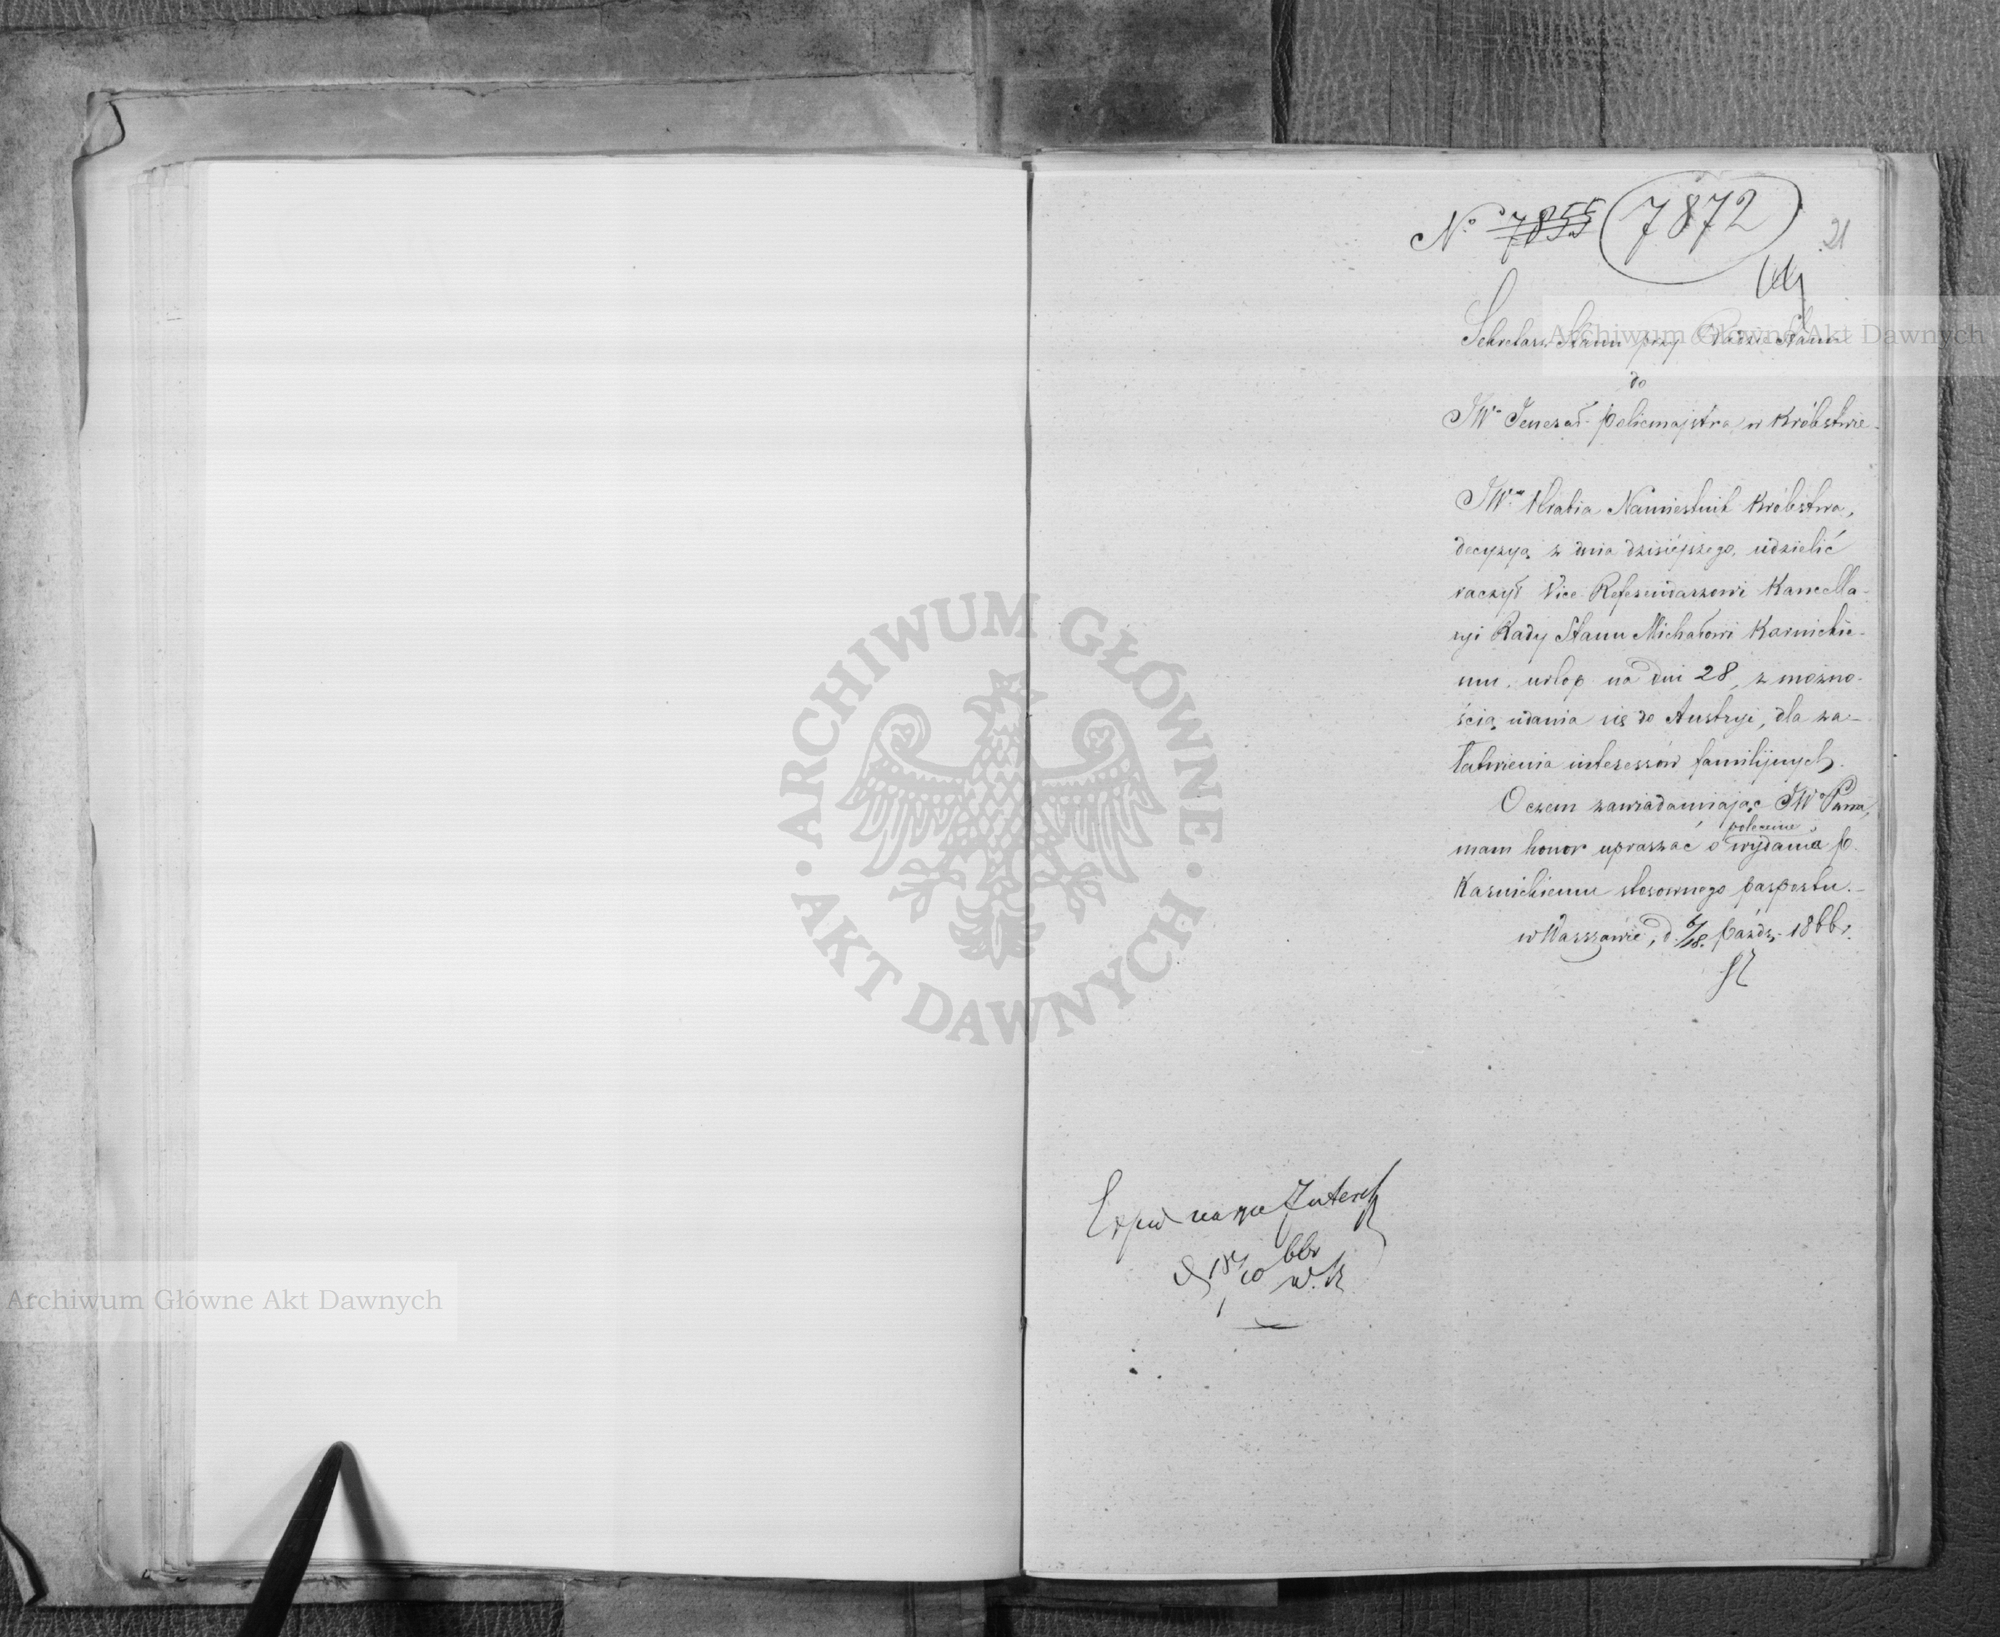 No 7855 7872
21
Sekretarz Stanu przy Radzie Stanu
do
JWo Jenerał-Policmajstra w Królestwie.
JWny Hrabia Namiestnik Królestwa,
decyzyą z dnia dzisiejszego, udzielić
raczył Vice Referendarzowi Kancella-
ryi Rady Stanu Michałowi Karnickie-
mu, urlop na dni 28, z możno-
ścią udania się do Austryi, dla za-
łatwienia interessów familijnych.
O czem zawiadamiając JW Pana,
polecenie
mam honor upraszać o wydania P.
Karnickiemu stosownego pasportu.
w Warszawie, d. 6/18. Paźdz. 1866 r.
Exped na ręce
d 18/10 66r
w. K
Archiwum Główne Akt Dawnych
ARCHIWUM GŁÓWNE
· AKT DAWNYCH ·
Archiwum Główne Akt Dawnych